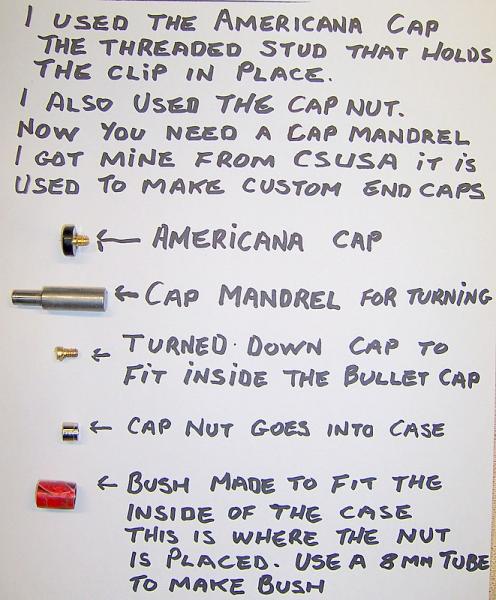 I USED THE AMERICANA CAP
THE THREADED STUD THAT HOLDS
THE CLIP IN PLACE.
I ALSO USED THE CAP NUT.
NOW YOU NEED A CAP MANDREL
I GOT MINE FROM CSUSA IT IS
USED TO MAKE CUSTOM END CAPS
← AMERICANA CAP
← CAP MANDREL FOR TURNING
← TURNED DOWN CAP TO
FIT INSIDE THE BULLET CAP
← CAP NUT GOES INTO CASE
← BUSH MADE TO FIT THE
INSIDE OF THE CASE
THIS IS WHERE THE NUT
IS PLACED. USE A 8MM TUBE
TO MAKE BUSH